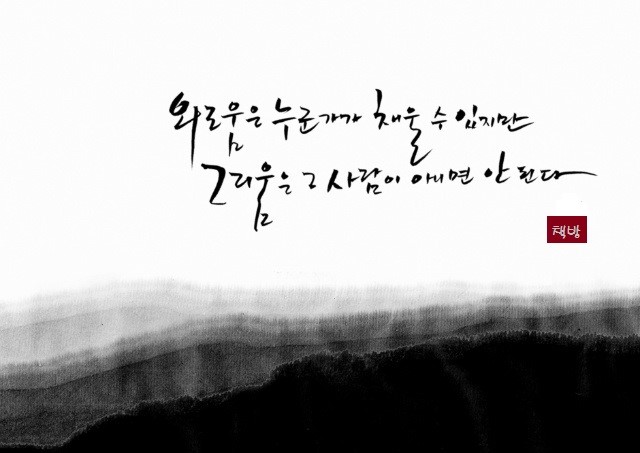 외로움은 누군가가 채울 수 있지만
그리움은 그 사람이 아니면 안 된다
책방